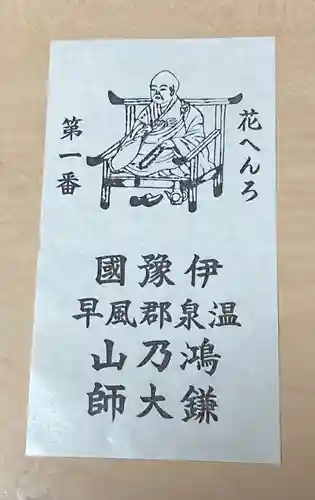 花へんろ
第一番
伊豫國
温泉郡風早
鴻乃山
鎌大師